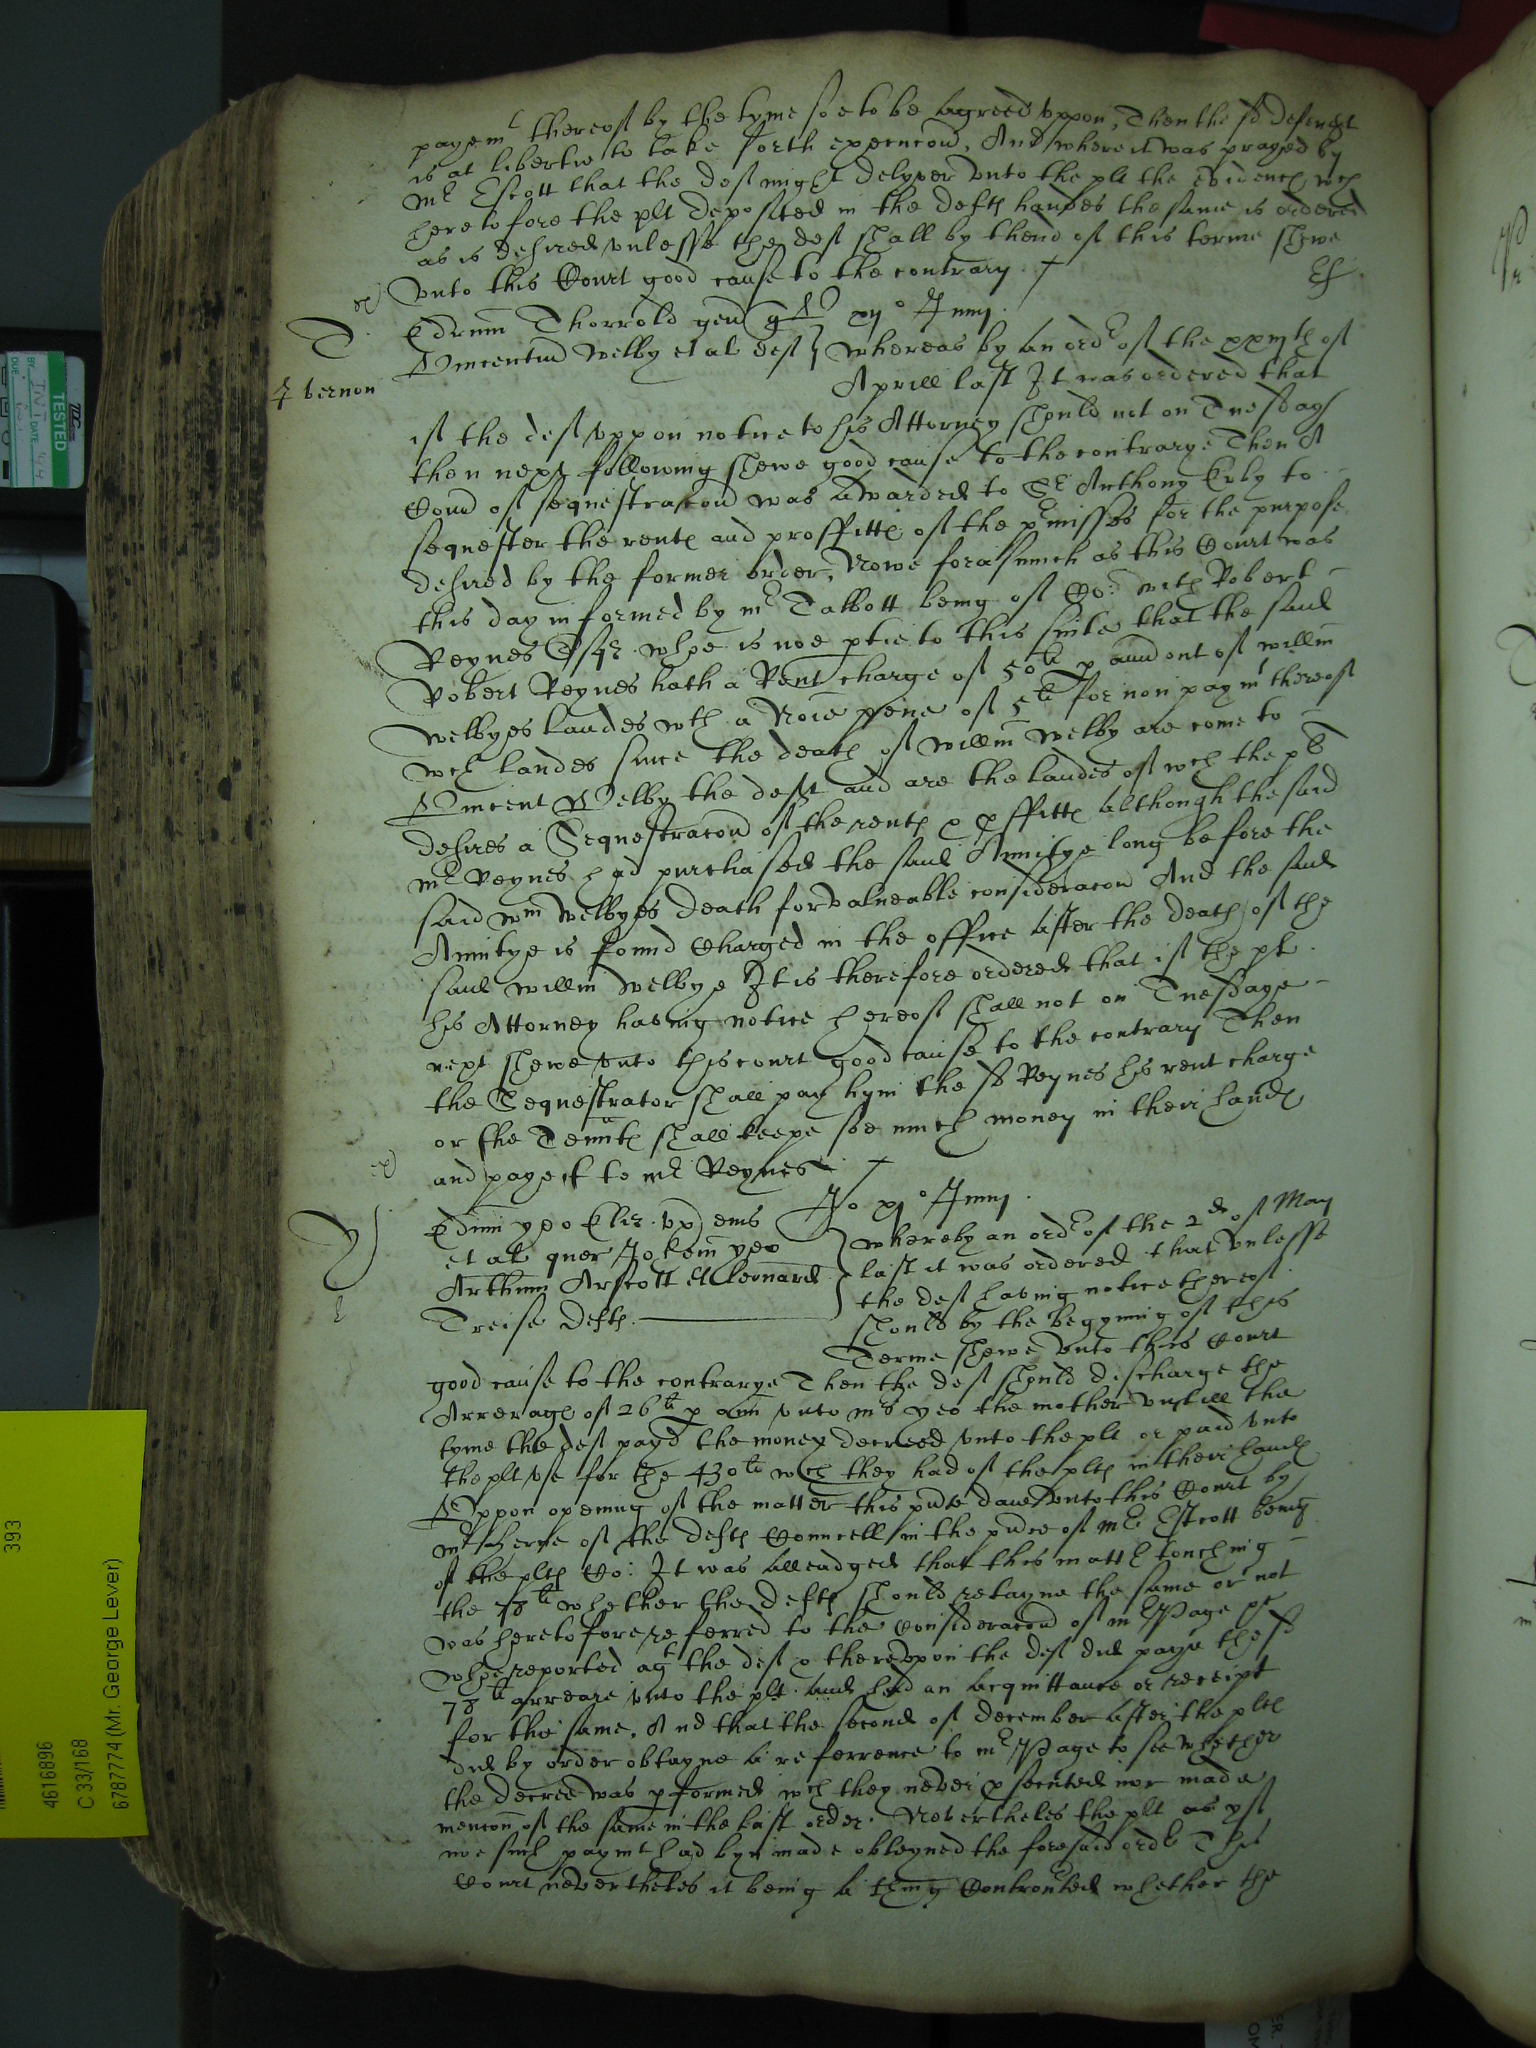 paym^t thereof by the tyme soe to be agreed vppon, Then the sd defend^t
is at libertie to take forth execucon, And where it was prayed by
M^r Escott that the def might delyver vnto the plt the evidenc^es w^ch
heretofore the plt deposited in the defts handes the same is ordered
as is desired vnlesse the def shall by thend of this terme shewe
vnto this Court good cause to the contrary
T
Edmm Thorrold gen q^r xij^o Junij
Vincentiu Welby et al def } whereas by an ord^r of the xxvjth of
J vernon
Aprill last It was ordered that
if the def vppon notice to his Attorney should not on Tuesday
then next following shewe good cause to the contrarye Then A
Com of sequestracon was awarded to S^r Anthony Irby to
sequester the rent^es and proffitt^es of the p^rmisses for the purpose
desired by the former order, Nowe forasmuch as this Court was
this day informed by m^r Talbott being of Co: with Robert
Reynes Esq^r whoe is noe ptie to this suite that the said
Robert Reynes hath a Rent charge of 50^li p annu out of willm
welbyes landes w^th a No^ie pene of 5^li for non paym^t thereof
w^ch landes since the death of willm welby are come to
Vincent Welby the deft and are the landes of w^ch the pl^t
desires a Sequestracon of the rent^es & pffitt^es Although the said
m^r Reynes had purchased the said Anuitye long before the
said w^m welbyes death for valueable consideracon And the said
Anuitye is found Charged in the office after the death of the
said willm welbye It is therefore ordered that if the plt
his Attorney having notice hereof shall not on Tuesdaye
next shewe vnto this court good cause to the contrary Then
the Sequestrator shall pay hym the sd Reynes his rent charge
or the Tenn^tes shall keepe soe much money in their hand^es
and paye it to m^r Reynes
Y
Edmi yeo Eler vx eius
et al quer Johem yeo
Arthum Arscott et Leonard
Treise defts
Jo xj^o Junij
whereby an ord^r of the 2^de of May
last it was ordered that vnlesse
the def having notice thereof
should by the begynning of this
Terme shewe vnto this Court
good cause to the contrarye Then the def should discharge the
Arrerag^es of 26^li p ann vnto m^rs yeo the mother vntill the
tyme the def payd the money decreed vnto the plt or paid vnto
the plt vse for the 430^li w^ch they had of the plt^es in their hand^es
Vppon opening of the matter this p^rnte daie vnto this Court by
m^r Herne of the defts Councell in the p^rnce of m^r Estcott being
of the plt^es Co: It was alleadged that this matt^r touching
the 78^li whether the defts should retayne the same or not
was heretofore referred to the consideracon of m^r Page
whoe reported ag^t the def & therevppon the def did paye the sd
78^li arreare vnto the plt and had an acquittance or receipt
for the same, And that the second of december after the plt^es
did by order obtayne a referrence to m^r Page to see whether
the decree was pformed w^ch they never psecuted nor made
mencon of the same in the last order. Nevertheles the plt as yf
noe such paym^t had byn made obteyned the foresaid ord^r This
Court nevertheles it being a thing Controuted whether the
393
4616896
C 33/168
6787774 (Mr. George Lever)
TESTED